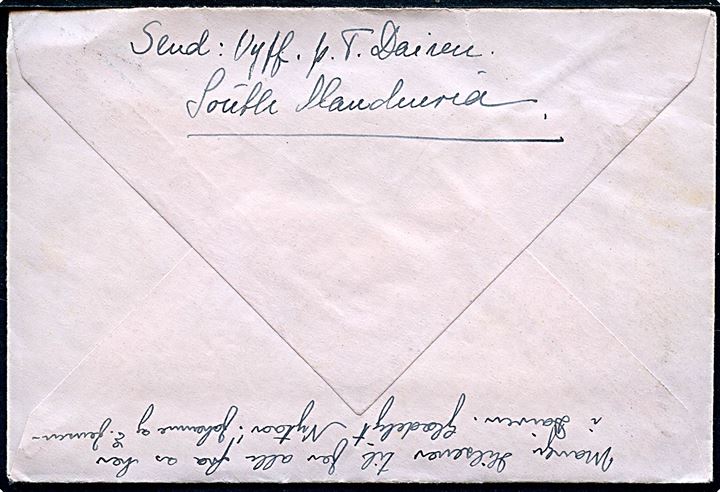 Send: Vyff. p. T. Dairen.
South Manchuria.
Mange Hilsener til Jer alle fra os her
i Dairen. Glædeligt Nytaar! Johanne og E. Jensen